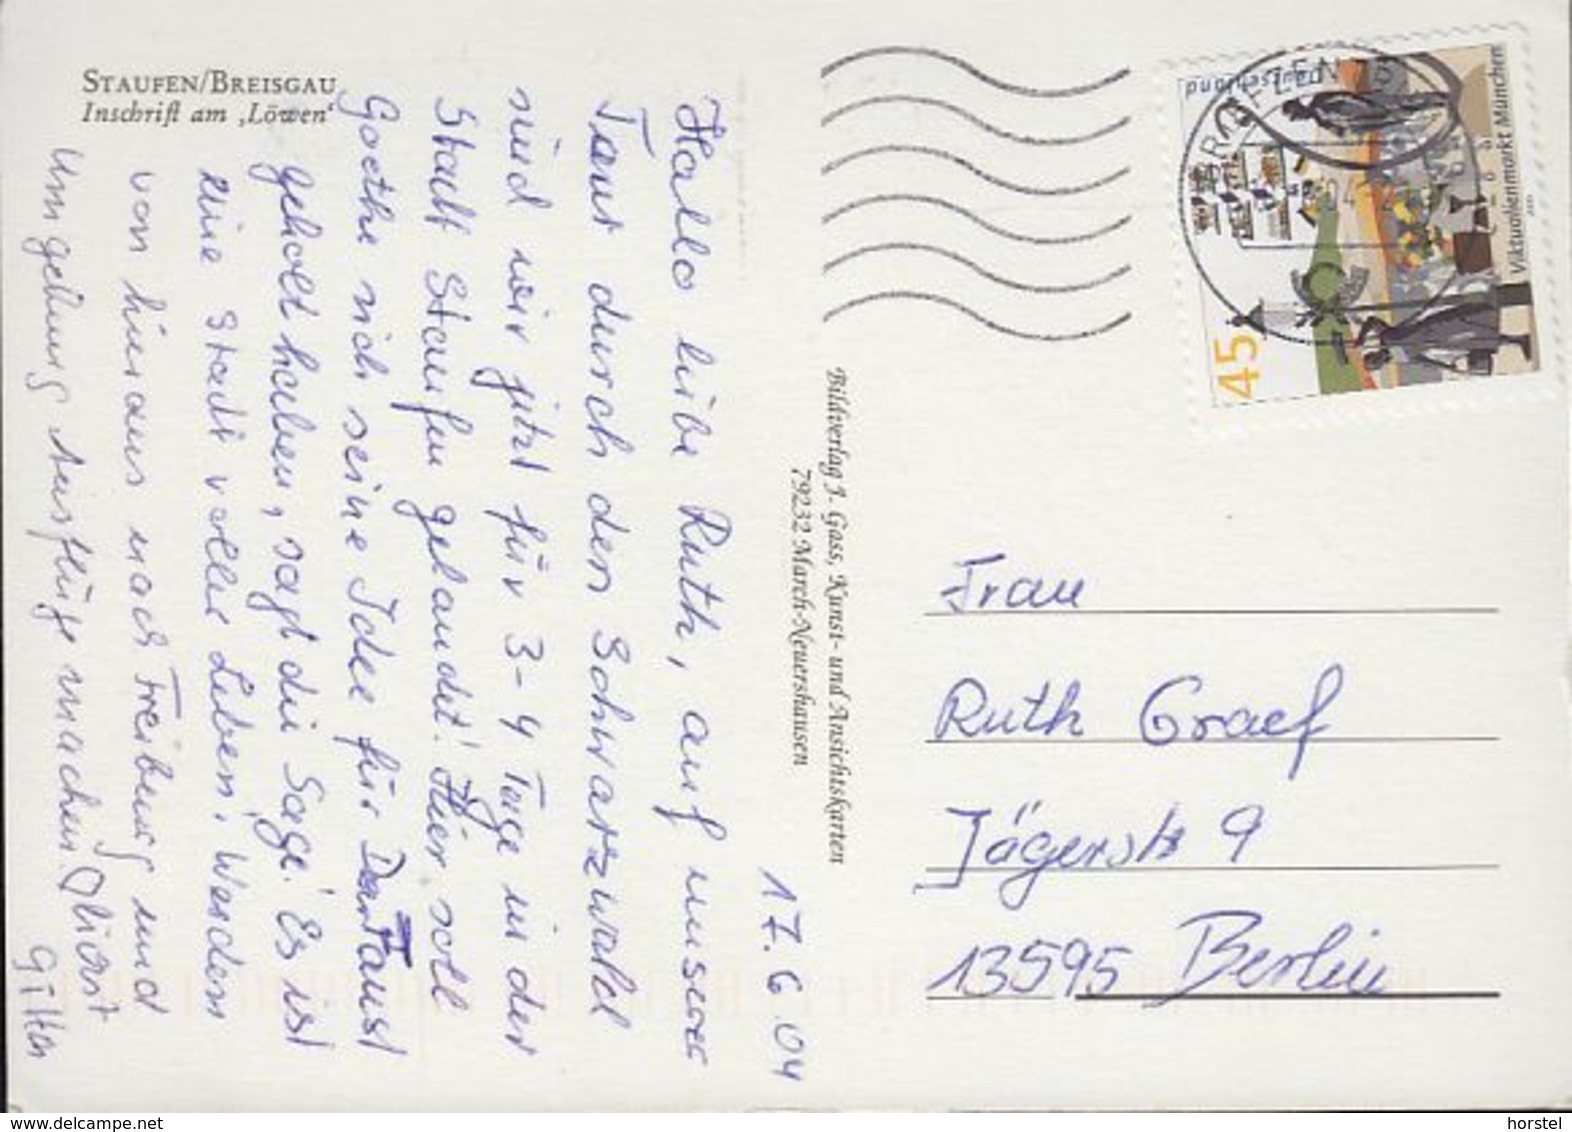 STAUFEN/BREISGAU
Inschrift am ‚Löwen‘
17.6.04
Hallo liebe Ruth, auf unserer
Tour durch den Schwarzwald
sind wir jetzt für 3-4 Tage in der
Stadt Staufen gelandet! Hier soll
Goethe sich seine Idee für Faust
geholt haben, sagt die Sage! Es ist
eine Stadt voller Leben! Werden
von hieraus nach Freiburg und
Umgebung Ausflüge machen.
Bildverlag J. Gass, Kunst- und Ansichtskarten
79232 March-Neuershausen
Deutschland
Viktualienmarkt München
45
Frau
Ruth Graef
Jägerstr 9
13595 Berlin
delcampe.net
horstel